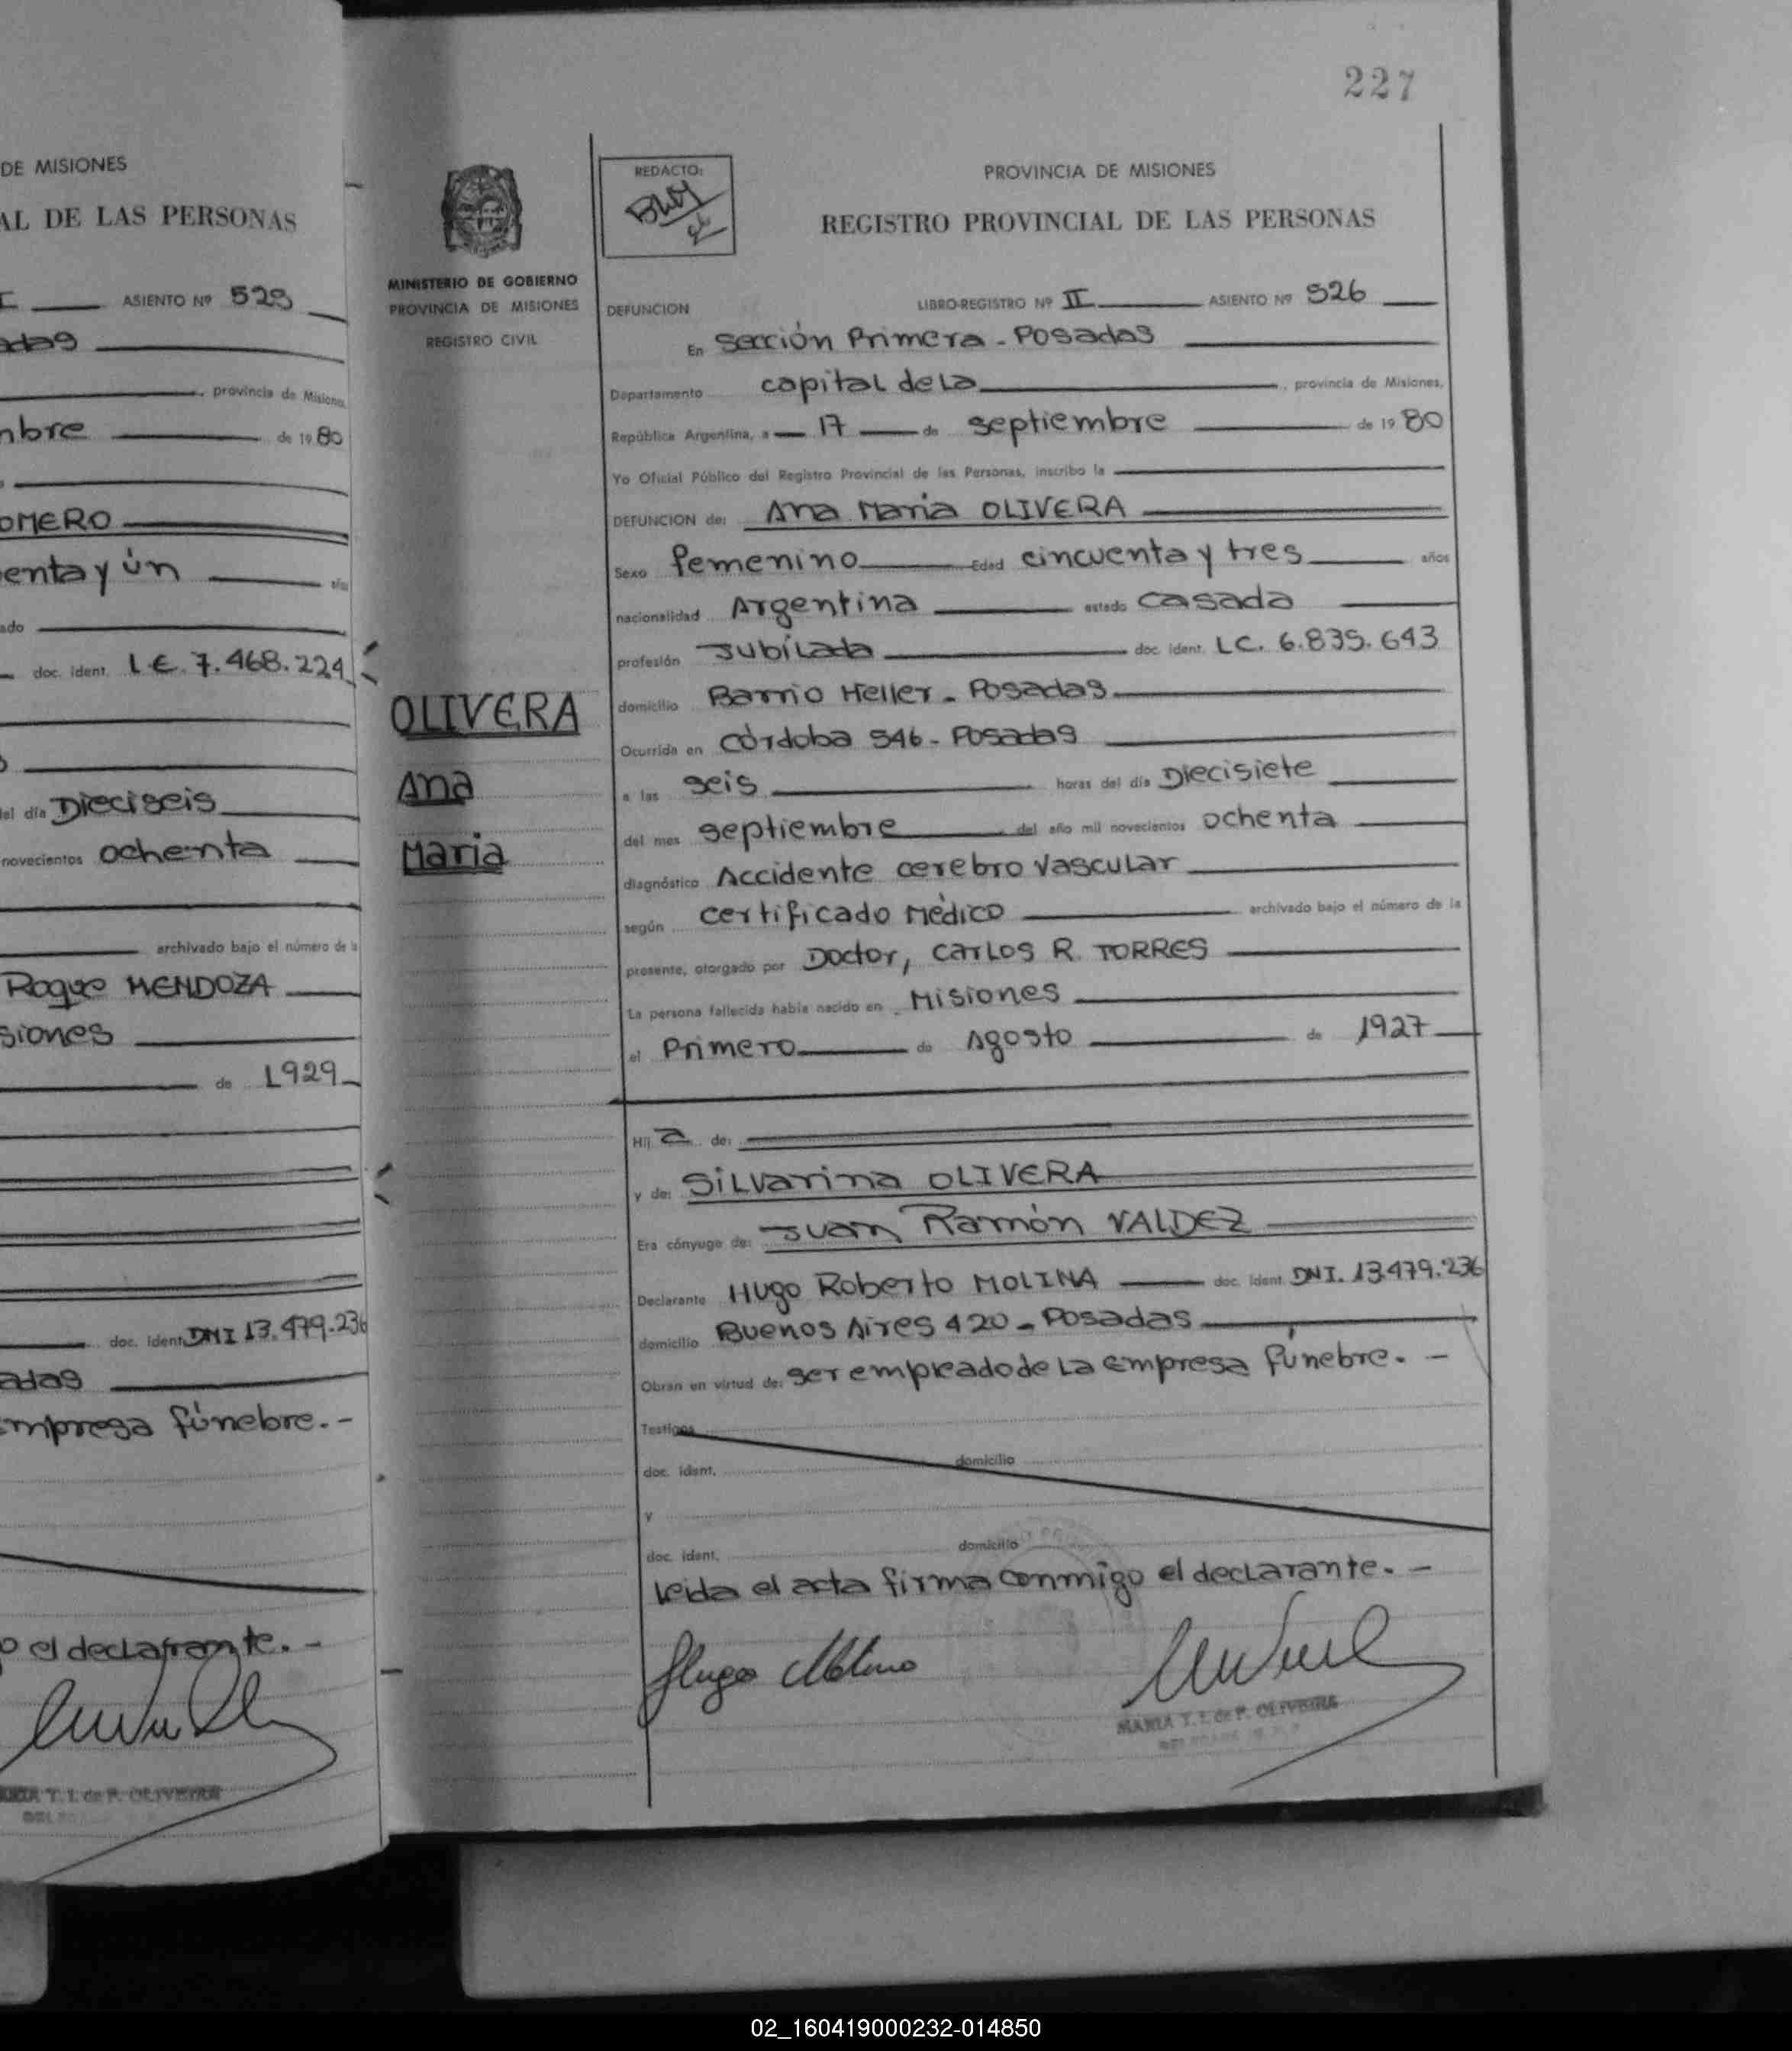 DE MISIONES
AL DE LAS PERSONAS
ASIENTO Nº 525
adas
, provincia de Misiones,
mbre de 19 80
OMERO
enta y ún
ado
doc. ident. L E. 7.468.224
del día Dieciseis
novecientos ochenta
archivado bajo el número de la
Roque MENDOZA
siones
de 1929
doc. ident. DNI 13.479.236
adas
empresa fúnebre.-
o el declarante.-
MARIA T. I. de P. OLIVEIRA
227
MINISTERIO DE GOBIERNO
PROVINCIA DE MISIONES
REGISTRO CIVIL
OLIVERA
Ana
Maria
REDACTO:
PROVINCIA DE MISIONES
REGISTRO PROVINCIAL DE LAS PERSONAS
DEFUNCION LIBRO-REGISTRO Nº II ASIENTO Nº 526
En Sección Primera - Posadas
Departamento capital de La , provincia de Misiones,
República Argentina, a 17 de septiembre de 19 80
Yo Oficial Público del Registro Provincial de las Personas, inscribo la
DEFUNCION de: Ana Maria OLIVERA
Sexo femenino Edad cincuenta y tres años
nacionalidad Argentina estado casada
profesión Jubilada doc. ident. LC. 6.835.643
domicilio Barrio Heller - Posadas
Ocurrida en Córdoba 546 - Posadas
a las seis horas del día Diecisiete
del mes septiembre del año mil novecientos ochenta
diagnóstico Accidente cerebro vascular
según certificado Médico archivado bajo el número de la
presente, otorgado por Doctor, Carlos R. TORRES
La persona fallecida había nacido en Misiones
el Primero de Agosto de 1927
Hij a de:
y de: Silvarina OLIVERA
Era cónyuge de: Juan Ramón VALDEZ
Declarante Hugo Roberto MOLINA doc. ident. DNI. 13.479.236
domicilio Buenos Aires 420 - Posadas
Obran en virtud de: ser empleado de La empresa fúnebre. -
Testigos
doc. ident. domicilio
y
doc. ident. domicilio
Leida el acta firma conmigo el declarante. -
Hugo Molina
MARIA T. I. de P. OLIVEIRA
02_160419000232-014850